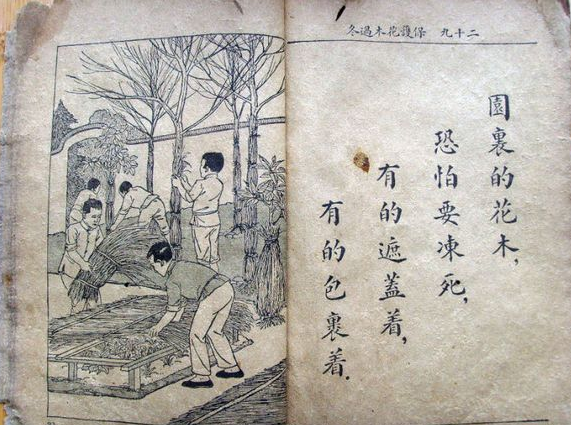 二十九 保護花木過冬
園裏的花木,
恐怕要凍死,
有的遮蓋着,
有的包裹着.